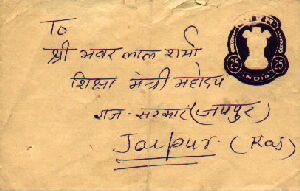 To
श्री भवर लाल शर्मा
शिक्षा मंत्री महोदय
राज. सरकार (जयपुर)
Jaipur (Raj)
25
INDIA
25